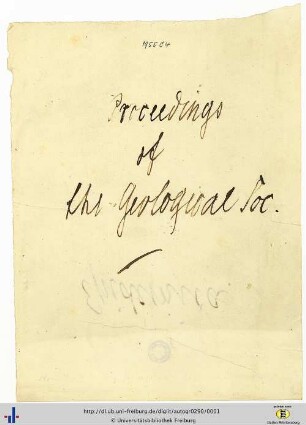 MSE04
Proceedings
of
the Geological Soc.
http://dl.ub.uni-freiburg.de/diglit/autogr0290/0001
© Universitätsbibliothek Freiburg